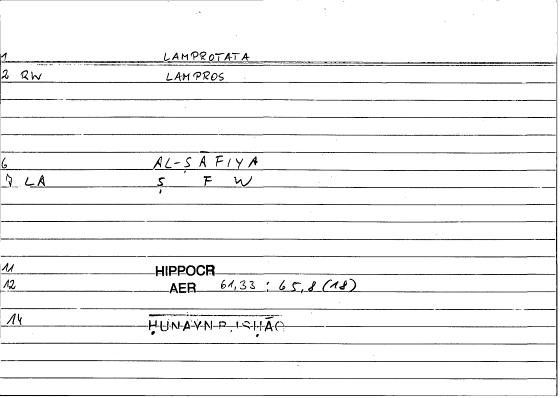 1 LAMPROTATA
2 RW LAMPROS
6 AL-ṢĀFIYA
7 LA Ṣ F W
11 HIPPOCR
12 AER 61,33 : 65,8 (18)
14 ḤUNAYN B. ISḤĀQ